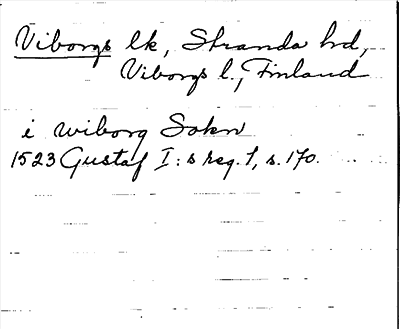 Viborgs lk, Stranda hd,
Viborgs l., Finland
i wiborg Sokn
1523 Gustaf I:s reg. 1, s. 170.